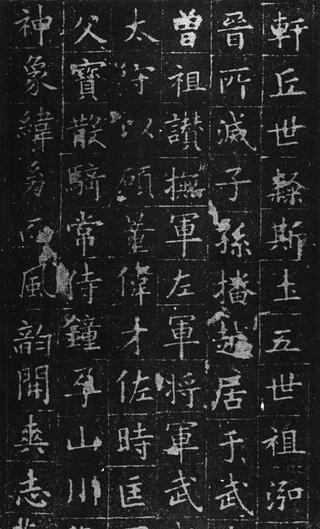 軒丘世隸斯土五世祖泓
晉所滅子孫播越居于武
曾祖讚撫軍左軍將軍武
太守以碩量偉才佐時匡
父寶散騎常侍鐘孕山川
神象緯風韻開爽志